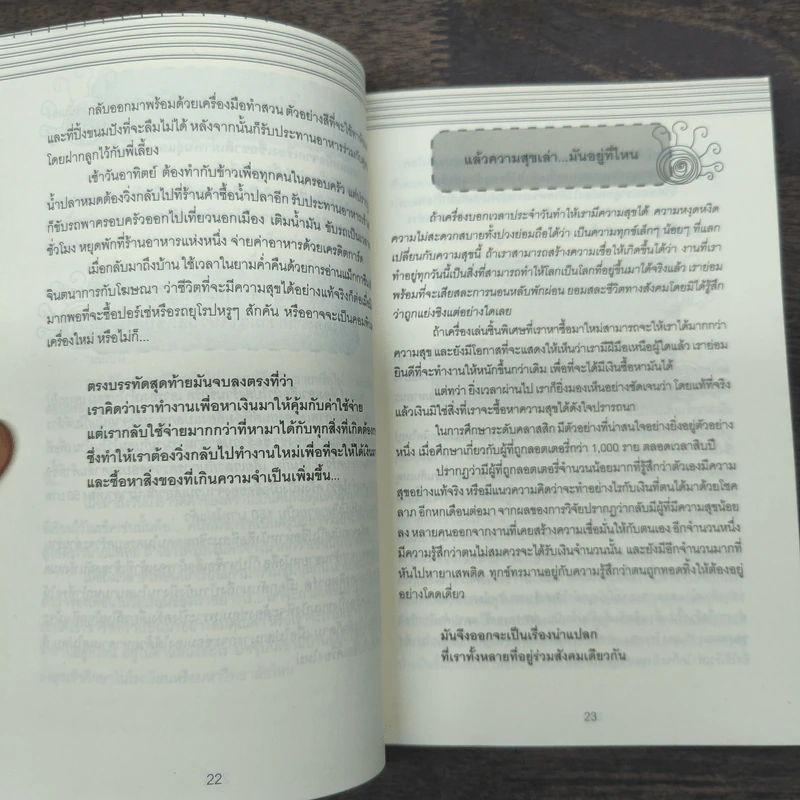 กลับออกมาพร้อมด้วยเครื่องมือทำสวน ตัวอย่างสีที่จะใช้ทา
และที่ปิ้งขนมปังที่จะลืมไม่ได้ หลังจากนั้นก็รับประทานอาหารร่วมกับ
โดยฝากลูกไว้กับพี่เลี้ยง
เช้าวันอาทิตย์ ต้องทำกับข้าวเพื่อทุกคนในครอบครัว
น้ำปลาหมดต้องวิ่งกลับไปที่ร้านค้าซื้อน้ำปลาอีก รับประทานอาหาร
ก็ขับรถพาครอบครัวออกไปเที่ยวนอกเมือง เติมน้ำมัน ขับรถเป็นเวลา
ชั่วโมง หยุดพักที่ร้านอาหารแห่งหนึ่ง จ่ายค่าอาหารด้วยเครดิตการ์ด
เมื่อกลับมาถึงบ้าน ใช้เวลาในยามค่ำคืนด้วยการอ่านแม็กกาซีน
จินตนาการกับโฆษณา ว่าชีวิตที่จะมีความสุขได้อย่างแท้จริงก็ต่อเมื่อ
มากพอที่จะซื้อปอร์เช่หรือรถยุโรปหรูๆ สักคัน หรืออาจจะเป็น
เครื่องใหม่ หรือไม่ก็...
ตรงบรรทัดสุดท้ายมันจบลงตรงที่ว่า
เราคิดว่าเราทำงานเพื่อหาเงินมาให้คุ้มกับค่าใช้จ่าย
แต่เรากลับใช้จ่ายมากกว่าที่หามาได้กับทุกสิ่งที่เกิด
ซึ่งทำให้เราต้องวิ่งกลับไปทำงานใหม่เพื่อที่จะให้ได้เงิน
และซื้อหาสิ่งของที่เกินความจำเป็นเพิ่มขึ้น...
22
แล้วความสุขเล่า...มันอยู่ที่ไหน
ถ้าเครื่องบอกเวลาประจำวันทำให้เรามีความสุขได้ ความหงุดหงิด
ความไม่สะดวกสบายทั้งปวงย่อมถือได้ว่า เป็นความทุกข์เล็กๆ น้อยๆ ที่แลก
เปลี่ยนกับความสุขนี้ ถ้าเราสามารถสร้างความเชื่อให้เกิดขึ้นได้ว่า งานที่เรา
ทำอยู่ทุกวันนี้เป็นสิ่งที่สามารถทำให้โลกเป็นโลกที่อยู่ขึ้นมาได้จริงแล้ว เราย่อม
พร้อมที่จะเสียสละการนอนหลับพักผ่อน ยอมสละชีวิตทางสังคมโดยมิได้รู้สึก
ว่าถูกแย่งชิงแต่อย่างใดเลย
ถ้าเครื่องเล่นชิ้นพิเศษที่เราหาซื้อมาใหม่สามารถจะให้เราได้มากกว่า
ความสุข และยังมีโอกาสที่จะแสดงให้เห็นว่าเรามีฝีมือเหนือผู้ใดแล้ว เราย่อม
ยินดีที่จะทำงานให้หนักขึ้นกว่าเดิม เพื่อที่จะได้มีเงินซื้อหามันได้
แต่ทว่า ยิ่งเวลาผ่านไป เราก็ยิ่งมองเห็นอย่างชัดเจนว่า โดยแท้ที่จริง
แล้วเงินมิใช่สิ่งที่เราจะซื้อหาความสุขได้ดังใจปรารถนา
ในการศึกษาระดับคลาสสิก มีตัวอย่างที่น่าสนใจอย่างยิ่งอยู่ตัวอย่าง
หนึ่ง เมื่อศึกษาเกี่ยวกับผู้ที่ถูกลอตเตอรี่กว่า 1,000 ราย ตลอดเวลาสิบปี
ปรากฏว่ามีผู้ที่ถูกลอตเตอรี่จำนวนน้อยมากที่รู้สึกว่าตัวเองมีความ
สุขอย่างแท้จริง หรือมีแนวความคิดว่าจะทำอย่างไรกับเงินที่ตนได้มาด้วยโชค
ลาภ อีกหกเดือนต่อมา จากผลของการวิจัยปรากฏว่ากลับมีผู้ที่มีความสุขน้อย
ลง หลายคนออกจากงานที่เคยสร้างความเชื่อมั่นให้กับตนเอง อีกจำนวนหนึ่ง
มีความรู้สึกว่าตนไม่สมควรจะได้รับเงินจำนวนนั้น และยังมีอีกจำนวนมากที่
หันไปหายาเสพติด ทุกข์ทรมานอยู่กับความรู้สึกว่าตนถูกทอดทิ้งให้ต้องอยู่
อย่างโดดเดี่ยว
มันจึงออกจะเป็นเรื่องน่าแปลก
ที่เราทั้งหลายที่อยู่ร่วมสังคมเดียวกัน
23